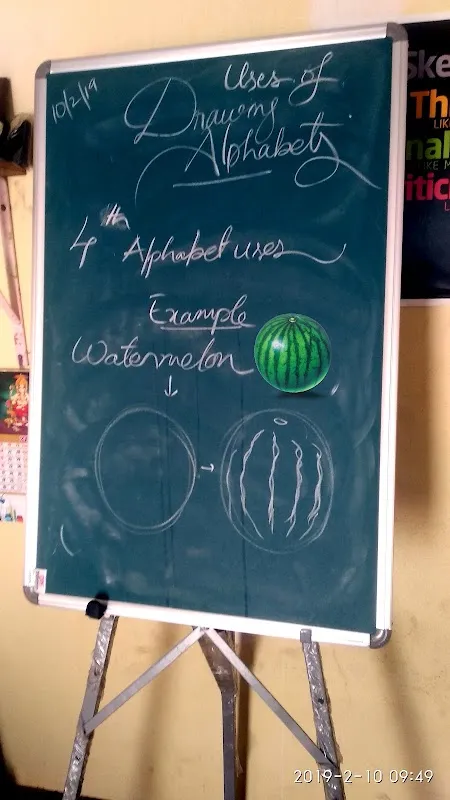 10/2/19
Uses of
Drawing
Alphabets
4 Alphabet uses
Example
Watermelon
Ske
Th
LIK
nal
IKE M
itic
2019-2-10 09:49